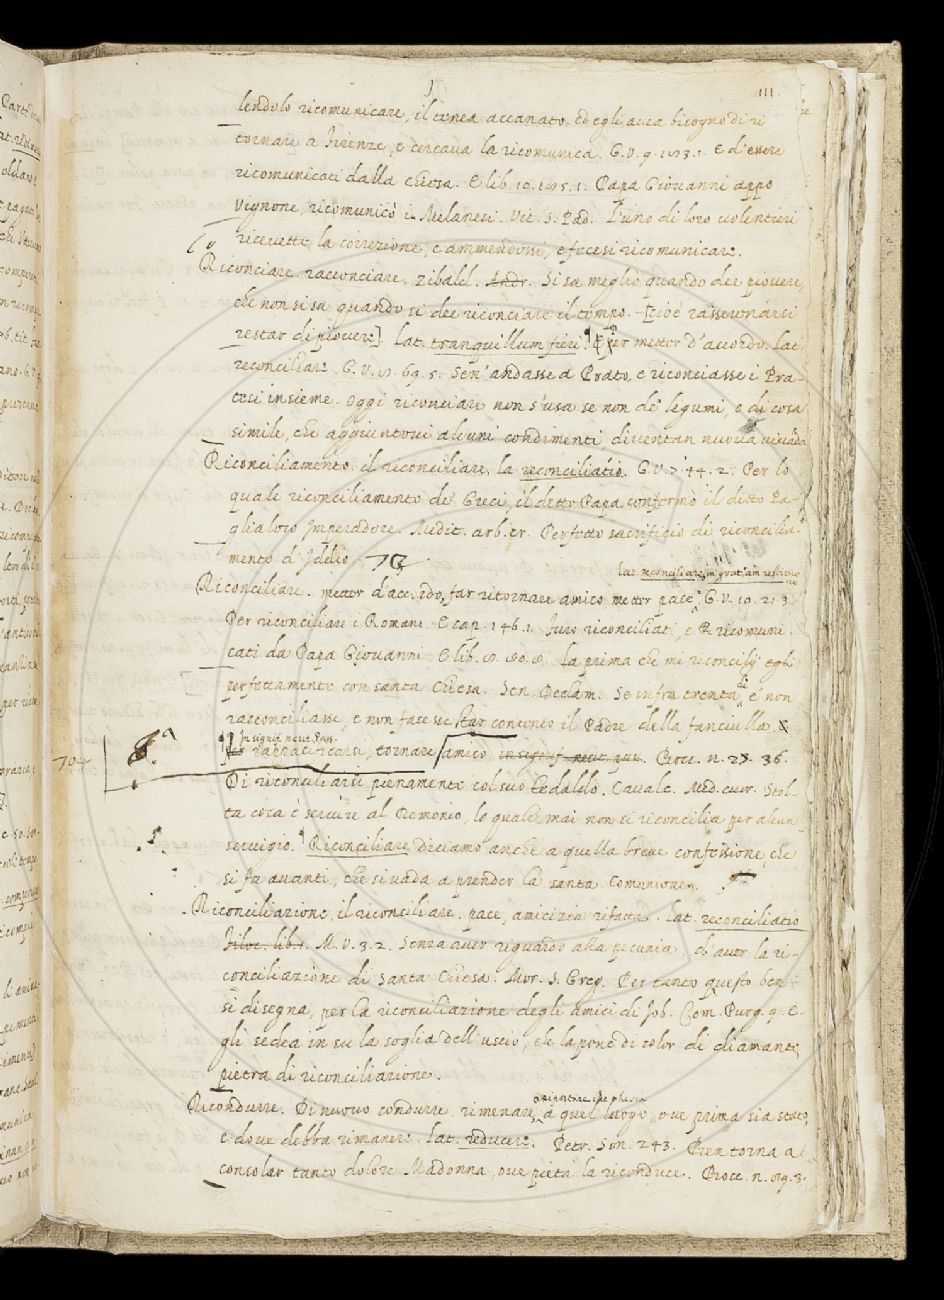 111.
lendolo ricomunicare, il tenea accanato. ed egli avea bisogno di ri
tornare a Firenze, e cercava la ricomunica. G.V. 9. E d'essere
ricomunicati dalla Chiesa. E lib. 10. Papa Giovanni appo
Vignone, ricomunicò i Melanesi. Vit. S. Pad. L'uno di loro volentieri
ricevette la correzione, e ammendossi, e fecesi ricomunicare.
Riconciare. racconciare. zibald. Andr. Si sa meglio quando dee piovere,
che non si sa quando si dee riconciare il tempo. [cioè rasserenarsi
restar di piovere]. Lat. tranquillum fieri. E per metter d'accordo. Lat.
reconciliare. G.V. Sen'andasse a Prato, e riconciasse i Pra-
tesi insieme. Oggi riconciare non s'usa se non de' legumi, o di cosa
simile, che aggiuntovi alcuni condimenti diventan nuova vivanda
Riconciliamento. il riconciliare. la reconciliatio. G.V. 7. 44. 2. Per lo
quale riconciliamento de' Greci, il detto Papa confermò il detto Pa-
glialoco Imperadore. Medit. arb. cr. Perfetto sacrificio di riconcilia-
mento a Iddio.
lat. reconciliare, in gratiam restitue
re
Riconciliare. metter d'accordo, far ritornare amico metter pace. G.V. 10. 21. 3
Per riconciliare i Romani. E cap. 146. 1. furo riconciliati, e ricomuni
cati da Papa Giovanni. E lib. La prima che mi riconcilij egli
perfettamente con santa Chiesa. Sen. Declam. Se infra trenta di e' non
racconciliasse, e non facesse star contento il Padre della fanciulla.
In signif. neut. pass.
704 per rappacificarsi, tornare amico in signif. neut. pass. Bocc. n. 36.
Di riconciliarsi pienamente col suo Tedaldo. Cavalc. Med. cuor. Stol-
ta cosa è servire al Demonio, lo quale mai non si riconcilia per alcun
servigio. Riconciliare diciamo anche a quella breve confessione, che
si fa avanti, che si vada a prender la santa Comunione.
Riconciliazione. il riconciliare. pace, amicizia rifatta. Lat. reconciliatio
Filoc. lib. M.V. 3. 2. Senza aver riguardo alla pecunia, ch'aver la ri-
conciliazione di Santa Chiesa. Mor. S. Greg. Per tanto questo ben
si disegna, per la riconciliazione degli amici di Job. Com. Purg. 9. E-
gli sedea in su la soglia dell'uscio, che la pone di color di diamante,
pietra di riconciliazione.
Ricondurre. Di nuovo condurre. rimenare, a quel luogo, ove prima sia stato,
e dove debba rimanere. Lat. reducere. Petr. Son. 243. Ben torna a
consolar tanto dolore Madonna, ove pietà la riconduce. Bocc. n.